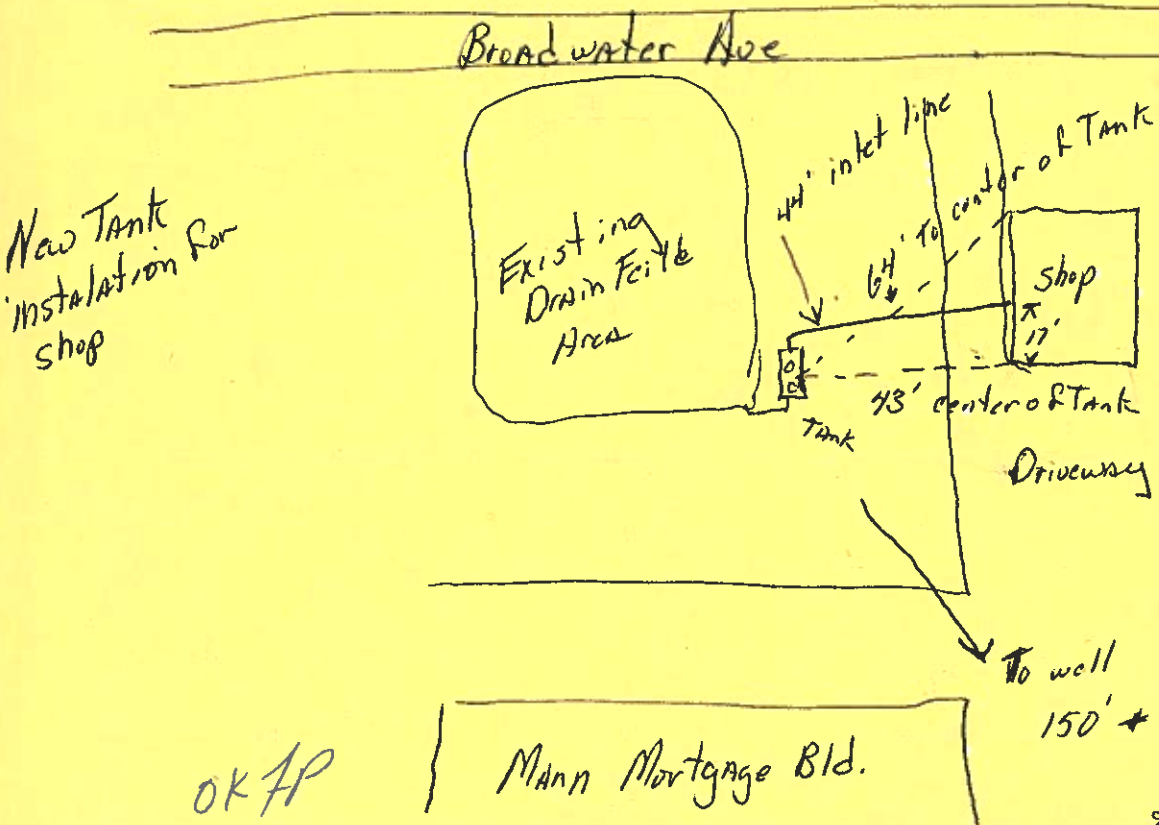 Broadwater Ave
New Tank
instalation for
shop
Existing
Drain Feild
Area
44' inlet line
64' To center of Tank
shop
17'
43' center of Tank
Tank
Driveway
To well
150'
Mann Mortgage Bld.
OK